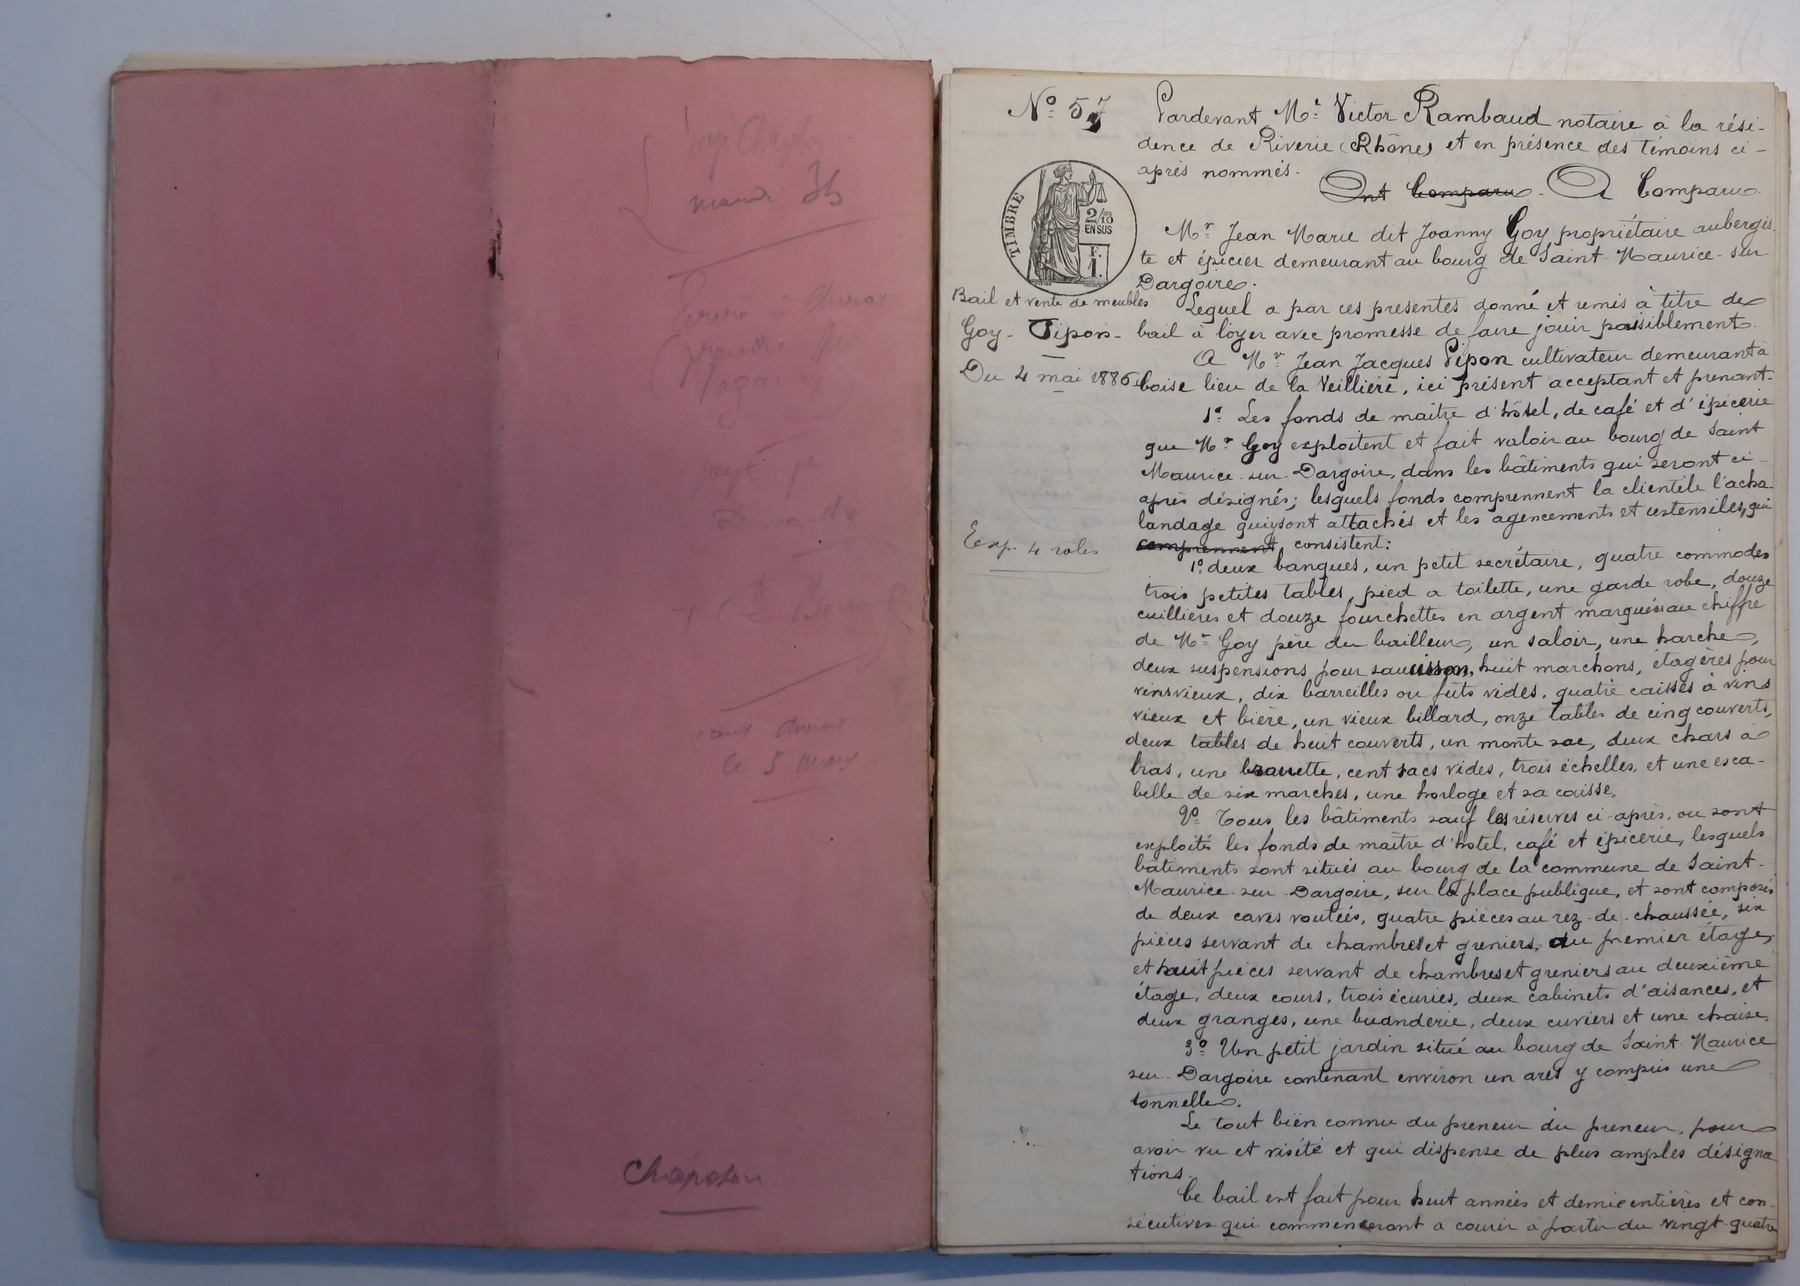 mardi 35
le 5 mars
Chapelon
N° 57
TIMBRE
2/10
EN SUS
F.
1.
Bail et vente de meubles
Goy - Pipon -
Du 4 mai 1886
Exp. 4 rôles
Pardevant Me Victor Rambaud notaire à la rési-
dence de Riverie (Rhône) et en présence des témoins ci-
après nommés.
Ont Comparu. A Comparu.
Mr Jean Marie dit Joanny Goy propriétaire aubergis
te et épicier demeurant au bourg de Saint-Maurice-sur
Dargoire.
Lequel a par ces présentes donné et remis à titre de
bail à loyer avec promesse de faire jouir paisiblement.
A Mr Jean Jacques Pipon cultivateur demeurant à
boise lieu de la Veillière, ici présent acceptant et prenant.
1° Les fonds de maître d'hôtel, de café et d'épicerie
que Mr Goy exploitent et fait valoir au bourg de Saint
Maurice-sur-Dargoire, dans les bâtiments qui seront ci-
après désignés; lesquels fonds comprennent la clientèle l'acha-
landage qui y sont attachés et les agencements et ustensiles, qui
comprennent, consistent:
1° deux banques, un petit secrétaire, quatre commodes
trois petites tables, pied a toilette, une garde robe, douze
cuillières et douze fourchettes en argent marquées au chiffre
de Mr Goy père du bailleur, un saloir, une harche,
deux suspensions pour saucisson, huit marchons, étagères pour
vins vieux, dix barreilles ou fûts vides, quatre caisses à vins
vieux et bière, un vieux billard, onze tables de cinq couverts,
deux tables de huit couverts, un monte sac, deux chars à
bras, une brouette, cent sacs vides, trois échelles, et une esca-
belle de six marches, une horloge et sa caisse,
2° Tous les bâtiments sauf les réserves ci-après, ou sont
exploités les fonds de maître d'hôtel, café et épicerie, lesquels
bâtiments sont situés au bourg de la commune de Saint-
Maurice-sur Dargoire, sur la place publique, et sont composés
de deux caves voutées, quatre pièces au rez-de-chaussée, six
pièces servant de chambres et greniers, au premier étage,
et huit pièces servant de chambres et greniers au deuxième
étage, deux cours, trois écuries, deux cabinets d'aisances, et
deux granges, une buanderie, deux cuviers et une chaise,
3° Un petit jardin situé au bourg de Saint-Maurice
sur-Dargoire contenant environ un ares y compris une
tonnelle.
Le tout bien connu du preneur du preneur, pour
avoir vu et visité et qui dispense de plus amples désigna
tions.
Ce bail est fait pour huit années et demie entières et con-
sécutives qui commenceront a courir à partir du vingt-quatre